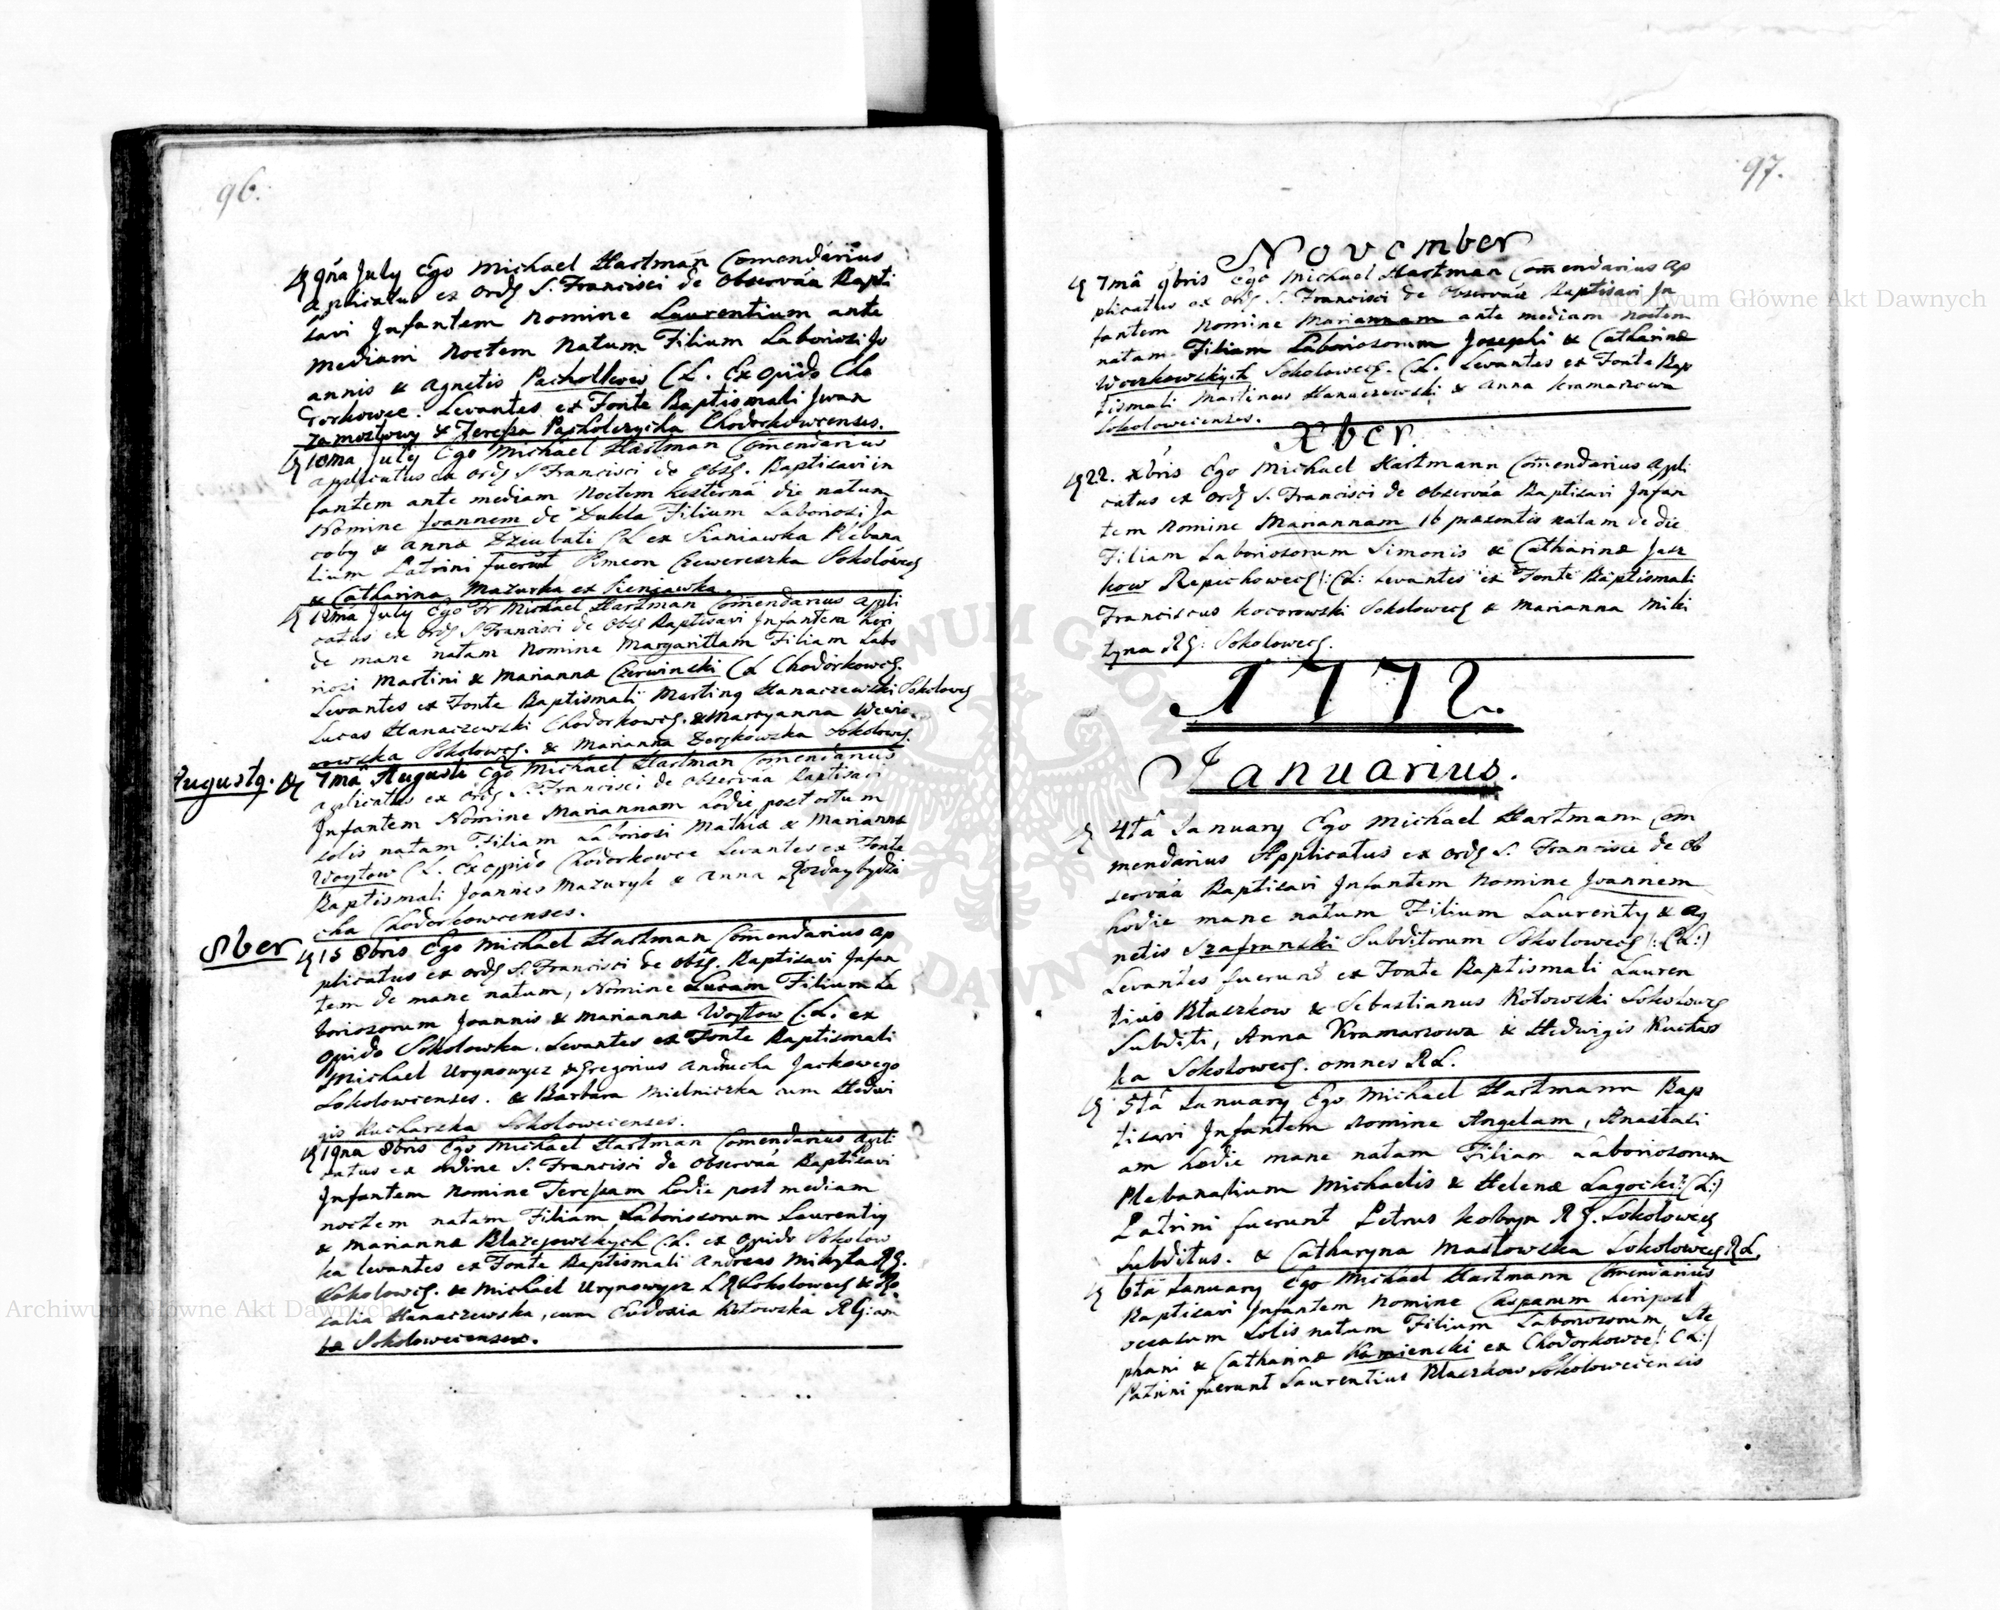 96.
9na July Ego Michael Hartman Comendarius
Aplicatus ex Ord S. Francisci de Observãa Bapti
savi Infantem Nomine Laurentium ante
mediam Noctem Natum Filium Laboriosi Jo
annis & Agnetis CL. Ex Opido Cho
dorkowce. Levantes ex Fonte Baptismali Jwan
Zamoztowy & Teressa Chodorkowcenses.
10ma July Ego Michael Hartman Comendarius
applicatus ex Ord S Francisci de Obs. Baptisavi in
fantem ante mediam Noctem hesterná die natum
Nomine Joannem de Dukla Filium Laboriosi Ja
coby & Annæ Dziubati CL ex Sieniawka Plebana
lium Patrini fuerũt Simeon Sokolowec
& Catharina Mazurka ex Sieniawka.
12ma July Ego Fr Michael Hartman Comendarius Apli
catus ex Ord S Francisci de Obs Baptisavi Infantem hoc
de mane natam Nomine Margarittam Filiam Labo
riosi Martini & Mariannæ Czerwinski CL Chodorkowec.
Levantes ex Fonte Baptismali Martinq Hanaczewski Sokolowec
Lucas Hanaczewski Chodorkowec. & Maryanna
Sokolowec. & Marianna Sokolowec.
Augustq.
7ma Augusti Ego Michael Hartman Comendarius
aplicatus ex Ord S. Francisci de Observãa Baptisavi
Infantem Nomine Mariannam hodie post ortum
solis natam Filiam Laboriosi Mathiæ & Mariannæ
Woytow CL. Ex oppido Chodorkowce Levantes ex Fonte
Baptismali Joannes Mazuryk & Anna
cha Chodorkowcenses.
8ber
15 8bris Ego Michael Hartman Comendarius ap
plicatus ex Ord S. Francisci de Obs. Baptisavi Infan
tem de mane natum, Nomine Lucam Filium La
boriosorum Joannis & Mariannæ Woytow C.L. ex
Opido Sokolowka. Levantes ex Fonte Baptismali
Michael Urynowycz & Gregorius Andrucha Jackowego
Sokolowcenses. & Barbara Mielniczka cum Hedwi
gis Kucharska Sokolowecenses.
19na 8bris Ego Michael Hartman Comendarius apli
catus ex ordine S. Francisci de Observãa Baptisavi
Infantem Nomine Teressam hodie post mediam
noctem natam Filiam Laboriosorum Laurentiy
& Mariannæ Blazejowskych C.L. ex Opido Sokolow
ka levantes ex Fonte Baptismali Andreas Mikyta RG.
Sokolowec. & Michael Urynowycz LR Sokolowec & Ro
salia Hanaczewska, cum Eudoxia Kotowska RG am
bæ Sokolowecenses.
97.
November
7mâ 9bris Ego Michael Hartman Comendarius Ap
plicatus ex Ord S. Francisci de Observãa Baptisavi In
fantem Nomine Mariannam ante mediam Noctem
natam Filiam Laboriosorum Josephi & Catharinæ
Sokolowec. CL. Levantes ex Fonte Bap
tismali Martinus Hanaczewski & Anna Kramarzowa
Sokolowecenses.
Xber.
22. xbris Ego Michael Hartmann Comendarius Apli
catus ex Ord S. Francisci de Observãa Baptisavi Infan
tem Nomine Mariannam 16 præsentis natam de die
Filiam Laboriosorum Simonis & Catharinæ Jasz
kow Repichowec/: CL: Levantes ex Fonte Baptismali
Franciscus Kocorowski Sokolowec & Marianna Miki
tyna RG: Sokolowec.
1772.
Januarius.
4tâ January Ego Michael Hartmann Com
mendarius Applicatus ex Ord S. Francisci de Ob
servãa Baptisavi Infantem Nomine Joannem
hodie mane natum Filium Laurentiy & Ag
netis Szafranski Subditorum Sokolowec/: CL:/
Levantes fuerunt ex Fonte Baptismali Lauren
tius Btaszkow & Sebastianus Kotowski Sokolowec
Subditi, Anna Kramarzowa & Hedwigis Kuchars
ka Sokolowec. omnes RL.
5tâ January Ego Michael Hartmann Bap
tisavi Infantem Nomine Angelam, Anastasi
am hodie mane natam Filiam Laboriosorum
Plebanalium Michaelis & Helenæ Lagocki: (L:)
Patrini fuerunt Petrus Kobryn RG. Sokolowec
Subditus. & Catharyna Mastowska Sokolowec RL.
6tâ January Ego Michael Hartmann Comendarius
Baptisavi Infantem Nomine Casparum heri post
occasum Solis natum Filium Laboriosorum, Ste
phani & Catharinæ Kamienski ex Chodorkowce/: CL:/
Patrini fuerunt Laurentius Btaszkow Sokolowecensis
Archiwum Główne Akt Dawnych
Archiwum Główne Akt Dawnych